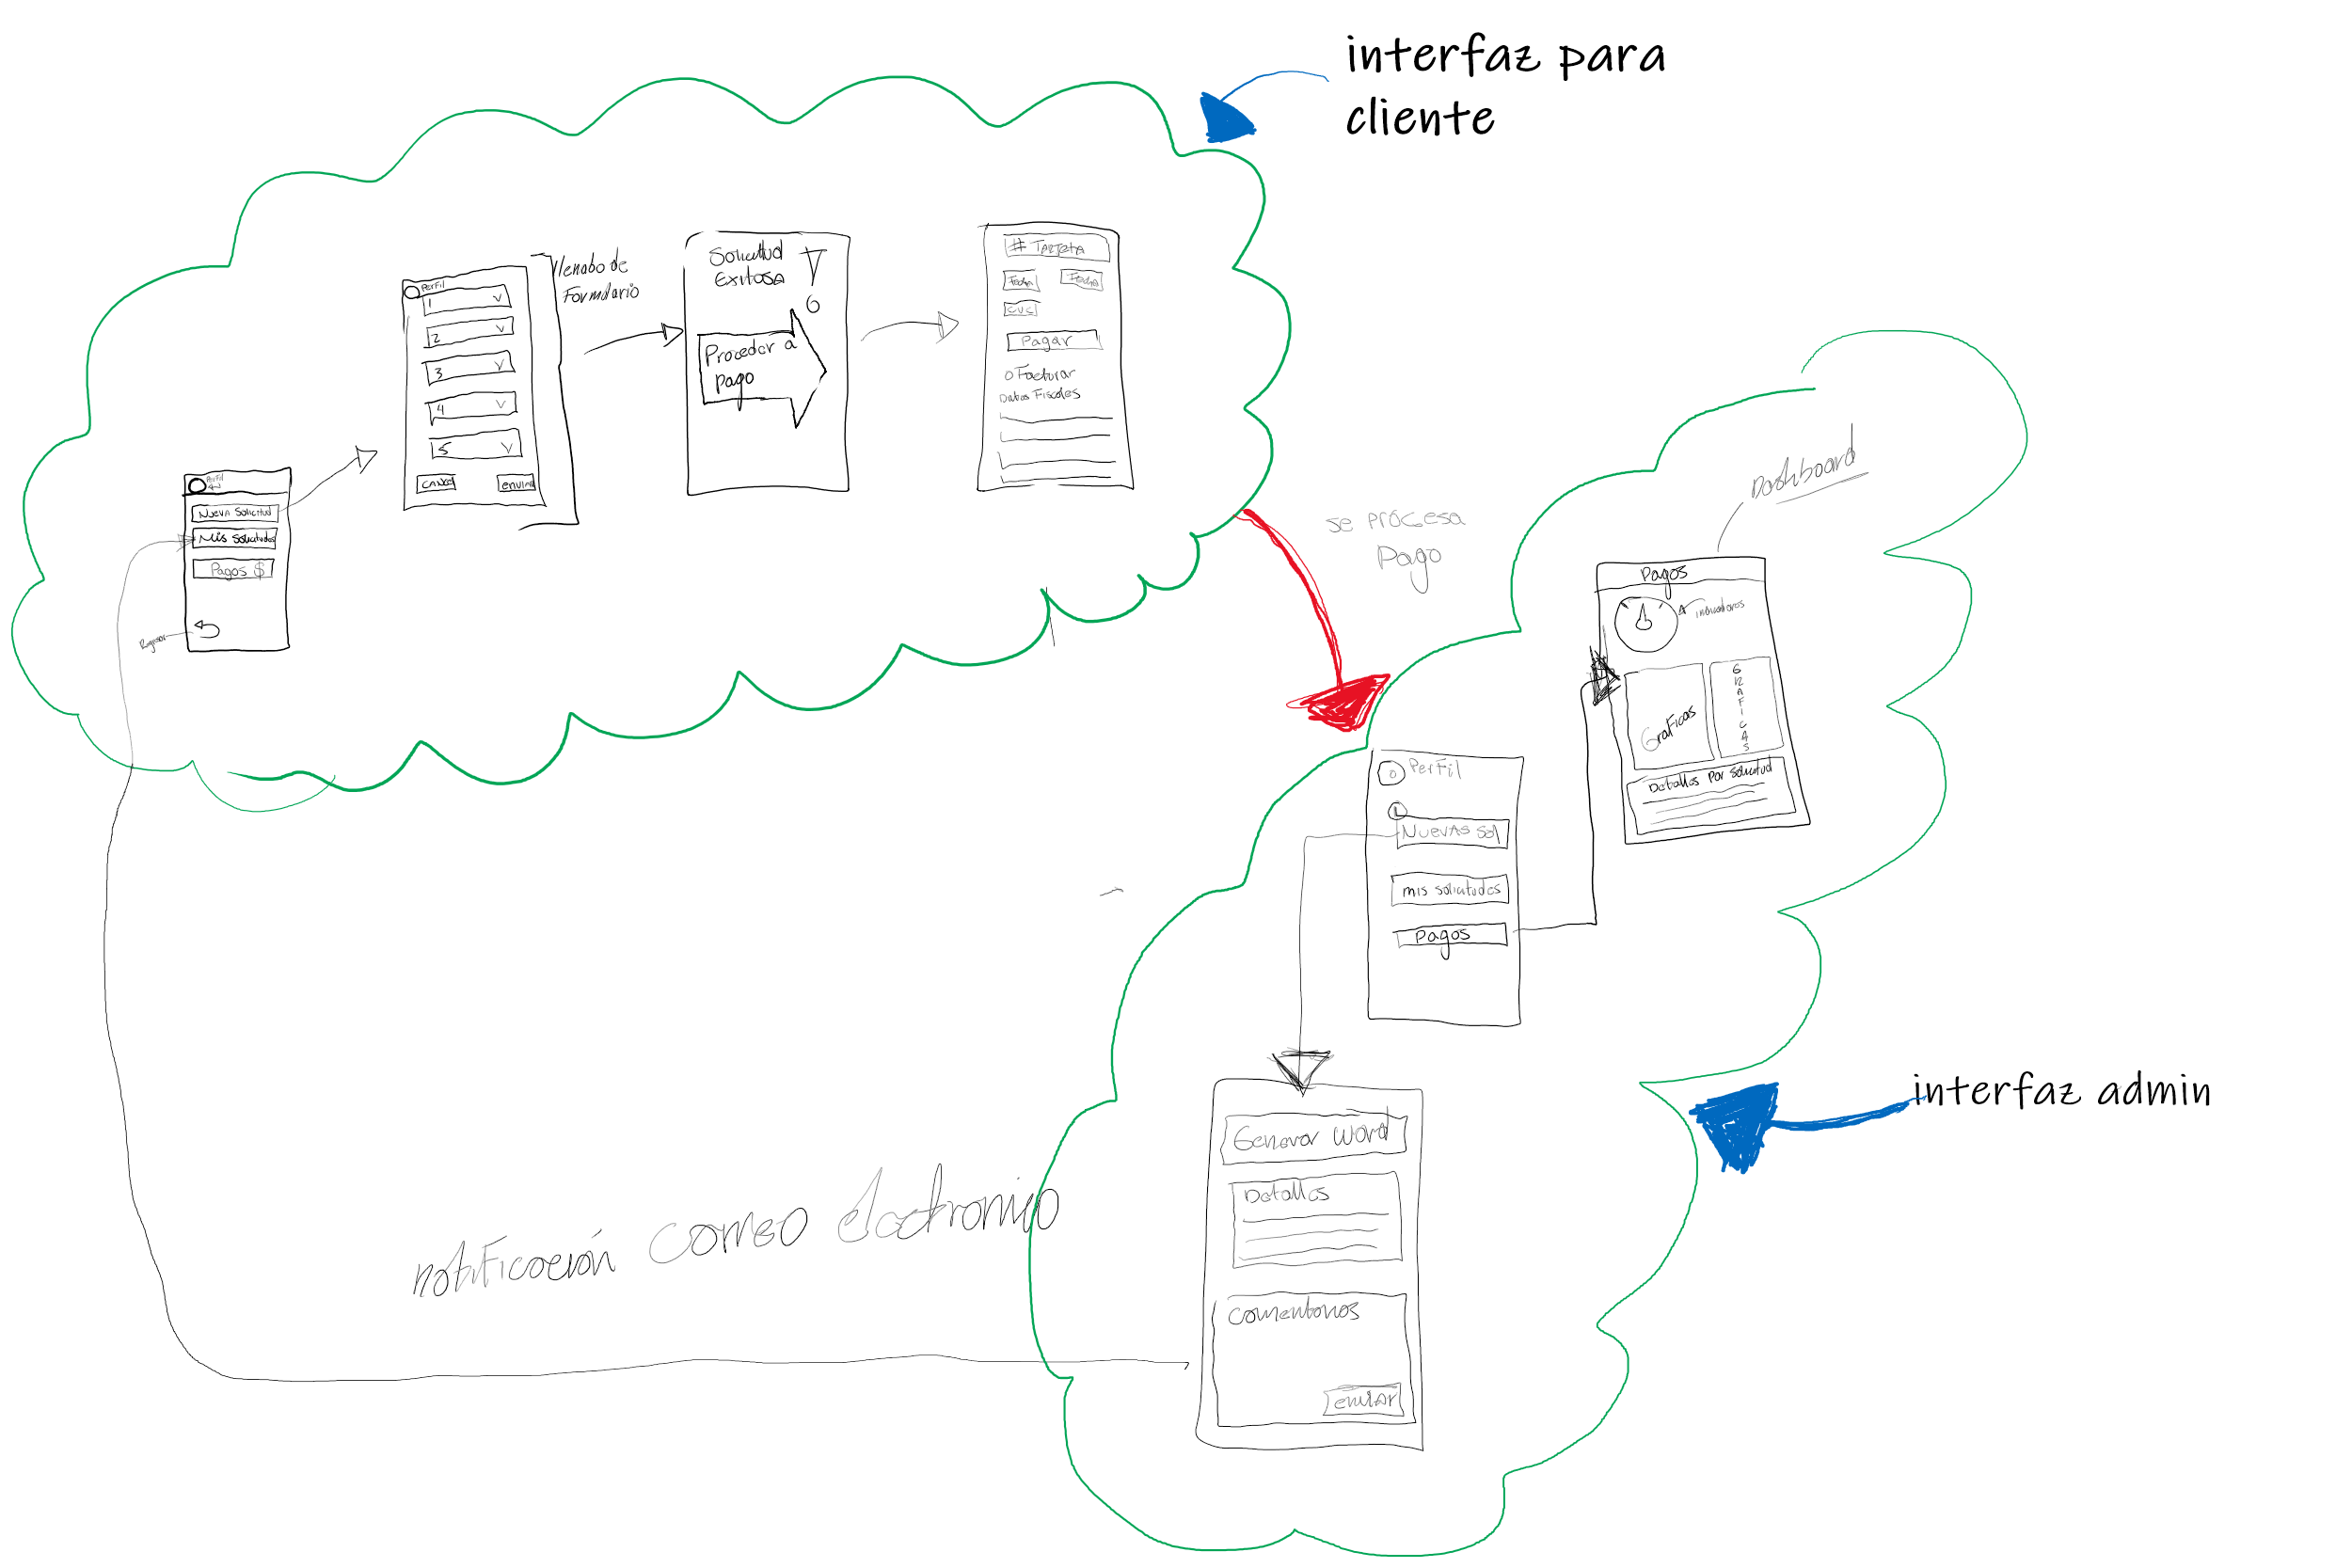 interfaz para
cliente
Perfil
Nueva Solicitud
Mis Solicitudes
Pagos $
Regresar
Perfil
1
2
3
4
5
Cancel
Enviar
llenabo de
Formulario
Solicitud
Exitosa
Proceder a
pago
# TARJETA
Fecha
Fecha
CVC
Pagar
o Facturar
Datos Fiscales
se procesa
Pago
Dashboard
Pagos
indicadores
Graficas
GRAFICAS
Detalles por solicitud
Perfil
NUEVAS Sol
mis solicitudes
Pagos
interfaz admin
Generar Word
Detalles
Comentarios
enviar
notificación correo electronico